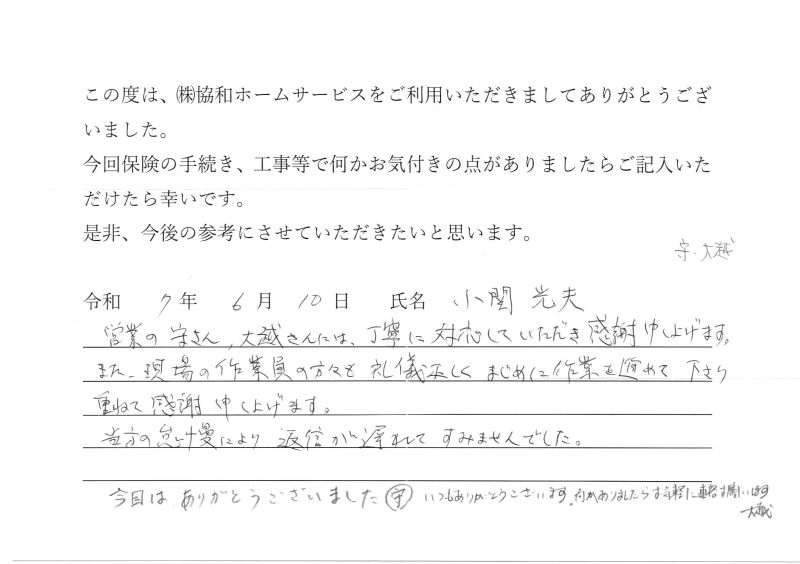 この度は、㈱協和ホームサービスをご利用いただきましてありがとうござ
いました。
今回保険の手続き、工事等で何かお気付きの点がありましたらご記入いた
だけたら幸いです。
是非、今後の参考にさせていただきたいと思います。
守・大越
令和 7年 6月 10日 氏名 小関 光夫
営業の守さん、大越さんには、丁寧に対応していただき感謝申し上げます。
また、現場の作業員の方々も礼儀正しくまじめに作業を進めて下さり
重ねて感謝申し上げます。
当方の怠慢により返信が遅れてすみませんでした。
今回は ありがとうございました 守 いつもありがとうございます。何かありましたらお気軽に連絡お願いします
大越